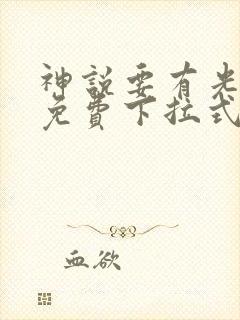 神說要有光
免費下拉式
血欲